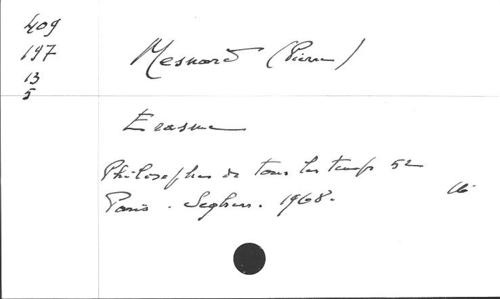 409
197
13
5
Mesnard (Pierre)
Erasme
Philosophes de tous les temps 52
Paris. Seghers. 1968.